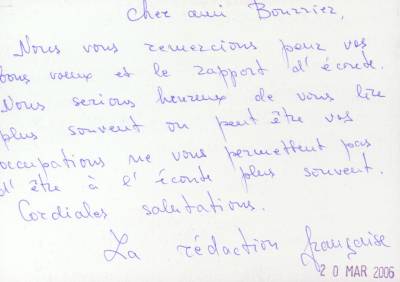 Cher ami Bourriez,
Nous vous remercions pour vos
bons voeux et le rapport d'écoute.
Nous serions heureux de vous lire
plus souvent ou peut être vos
occupations ne vous permettent pas
d'être à l'écoute plus souvent.
Cordiales salutations.
La rédaction française
20 MAR 2006